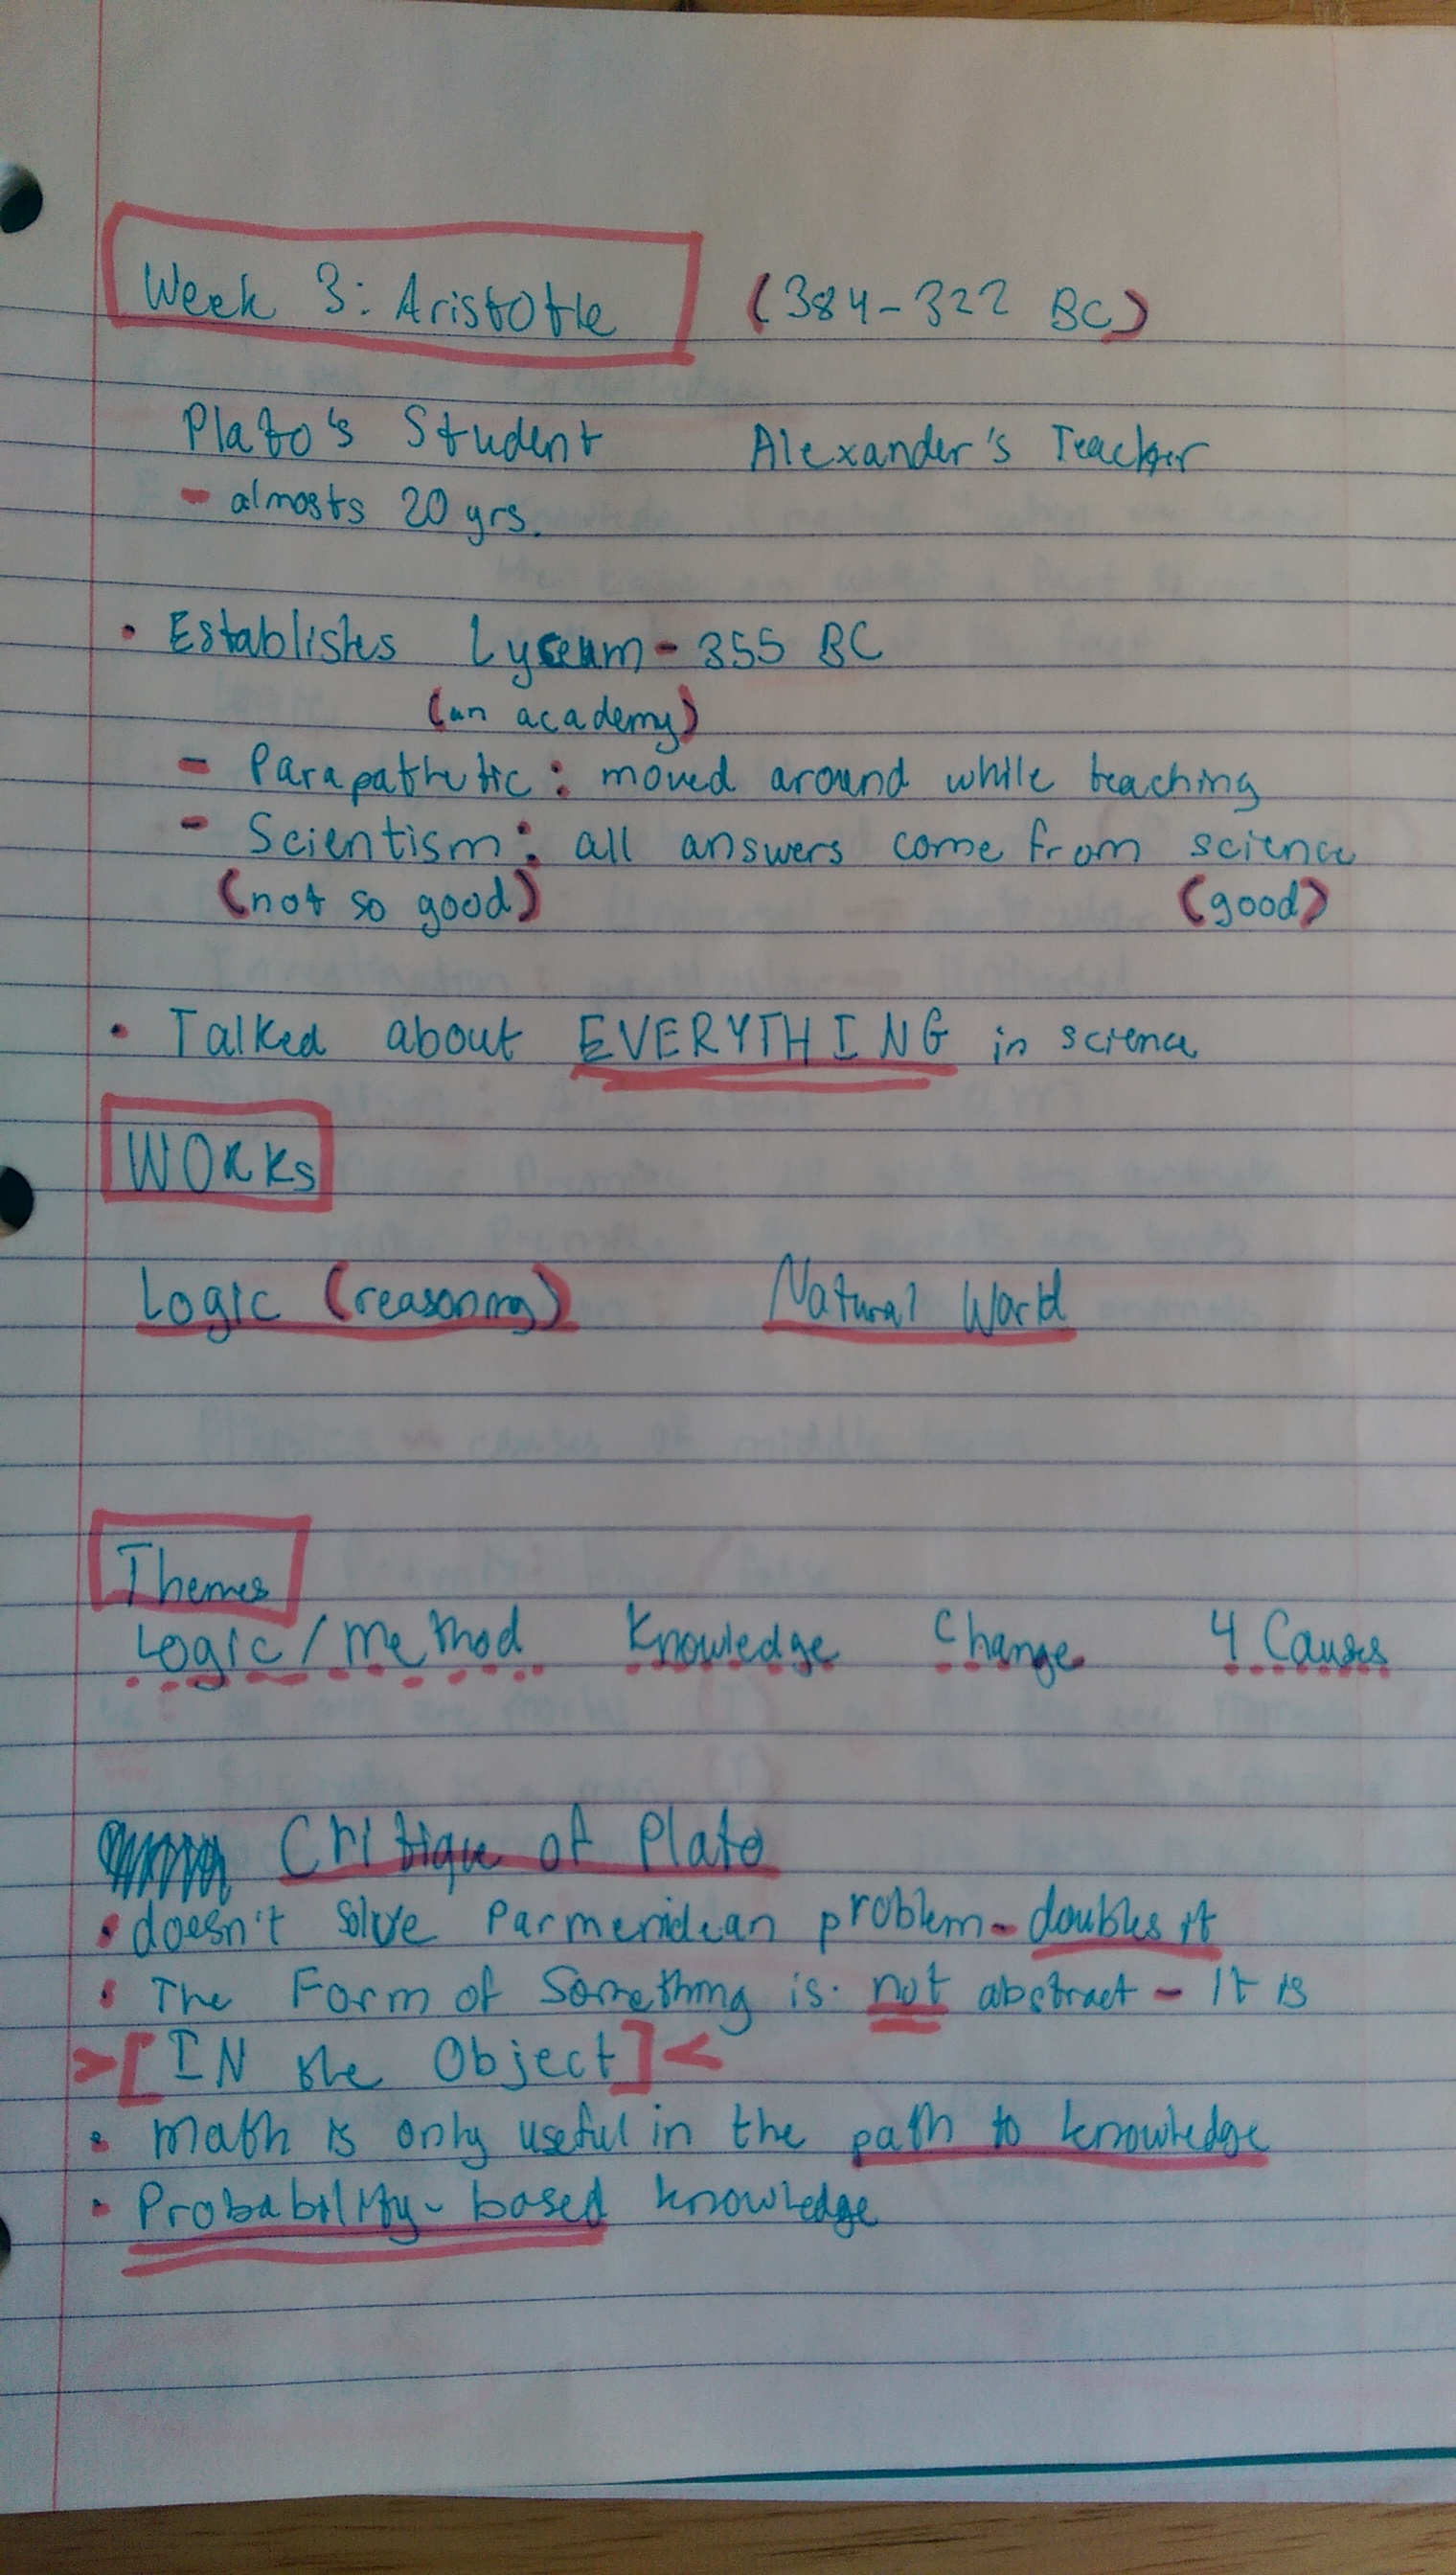 Week 3: Aristotle (384-322 BC)
Plato's Student Alexander's Teacher
- almosts 20 yrs.
• Establishes Lyceum - 355 BC
(an academy)
- Parapathetic: moved around while teaching
- Scientism: all answers come from science
(not so good) (good)
• Talked about EVERYTHING in science
WORKs
Logic (reasoning) Natural World
Themes
Logic/Method Knowledge Change 4 Causes
Critique of Plato
• doesn't solve Parmenidean problem - doubles it
• The Form of Something is not abstract - It is
>[IN the Object]<
• Math is only useful in the path to knowledge
• Probability-based knowledge